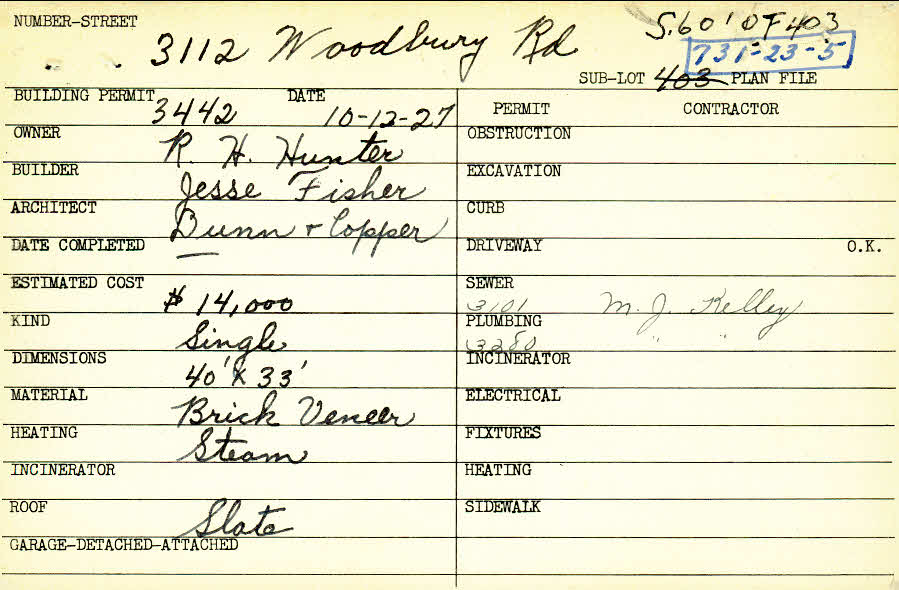 NUMBER-STREET 3112 Woodbury Rd S.60' OF 403
731-23-5
SUB-LOT 403 PLAN FILE
BUILDING PERMIT 3442 DATE 10-12-27
PERMIT CONTRACTOR
OWNER R. H. Hunter
OBSTRUCTION
BUILDER Jesse Fisher
EXCAVATION
ARCHITECT Dunn + Copper
CURB
DATE COMPLETED —
DRIVEWAY O.K.
ESTIMATED COST $ 14,000
SEWER 3101 M. J. Kelley
KIND Single
PLUMBING 3280 " "
DIMENSIONS 40' X 33'
INCINERATOR
MATERIAL Brick Veneer
ELECTRICAL
HEATING Steam
FIXTURES
INCINERATOR
HEATING
ROOF Slate
SIDEWALK
GARAGE-DETACHED-ATTACHED